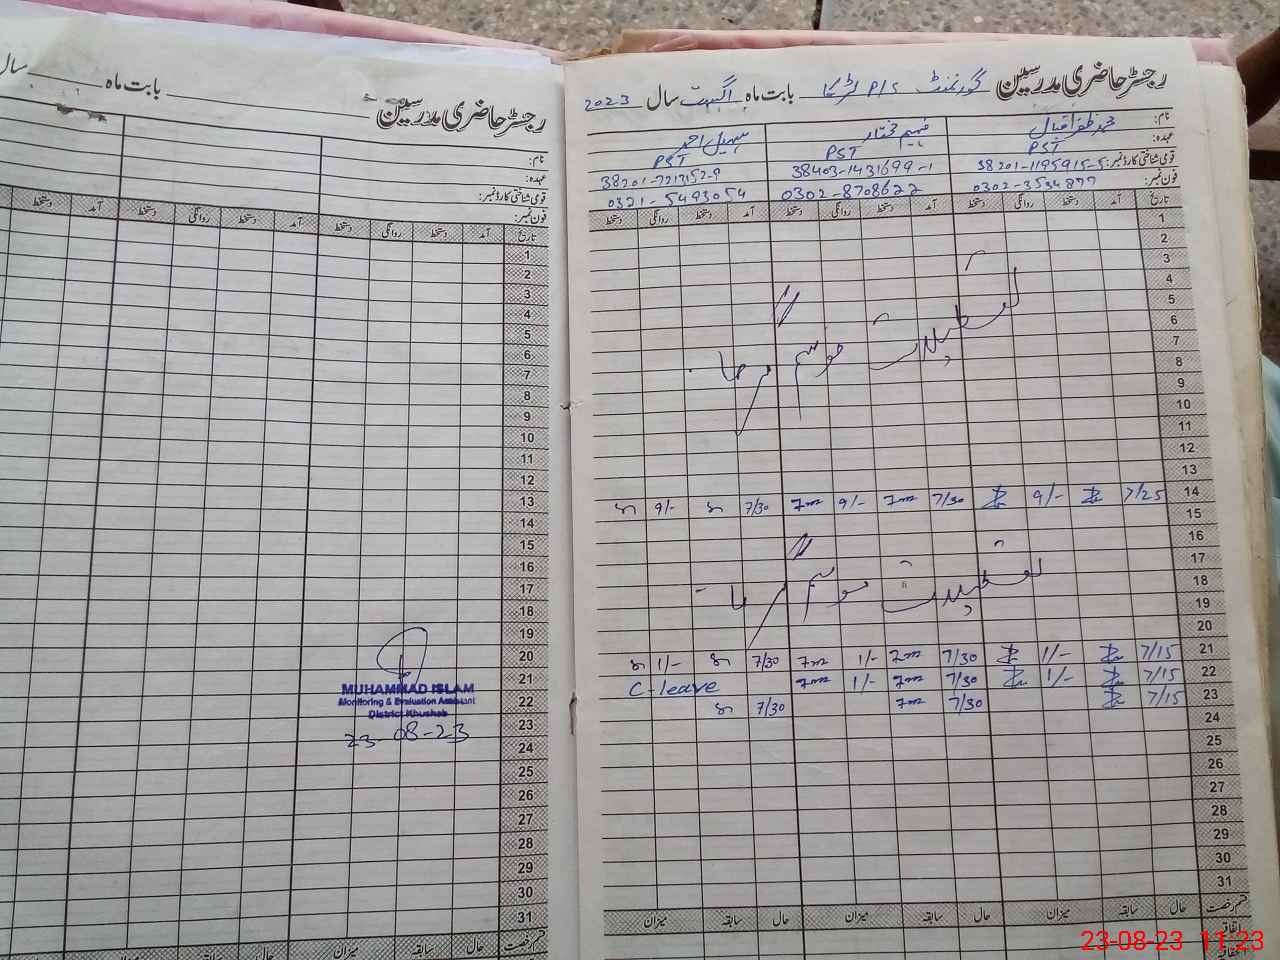 رجسٹر حاضری مدرسین گورنمنٹ P/S لڑکا بابت ماہ اگست سال 2023
نام: محمد ظفر اقبال فہیم مختار سہیل احمد
عہدہ: PST PST PST
قومی شناختی کارڈ نمبر: 38201-1195915-5 38403-1431699-1 38201-7213152-9
فون نمبر: 0302-8708622 0321-5493054
تاریخ آمد دستخط روانگی دستخط آمد دستخط روانگی دستخط آمد دستخط روانگی دستخط
1
2
3
4
5
6
7
8
تعطیلات موسم گرما
9
10
11
12
13
14 7/25 9/- 7/30 9/- 7/30 9/-
15
16
17
18
تعطیلات موسم گرما
19
20
21 7/15 1/- 7/30 1/- 7/30 1/-
22 7/15 1/- 7/30 1/- C-leave
23 7/15 7/30 7/30
24
25
26
27
28
29
30
31
قسم رخصت حال سابقہ میزان حال سابقہ میزان حال سابقہ میزان
اتفاقیہ
رجسٹر حاضری مدرسین بابت ماہ سال
نام:
عہدہ:
قومی شناختی کارڈ نمبر:
فون نمبر:
تاریخ آمد دستخط روانگی دستخط آمد دستخط روانگی دستخط آمد دستخط
1
2
3
4
5
6
7
8
9
10
11
12
13
14
15
16
17
18
19
20
21
22
23
24
25
26
27
28
29
30
31
MUHAMMAD ISLAM
Monitoring & Evaluation Assistant
District Khushab
23-08-23
قسم رخصت حال سابقہ میزان حال سابقہ
23-08-23 11:23